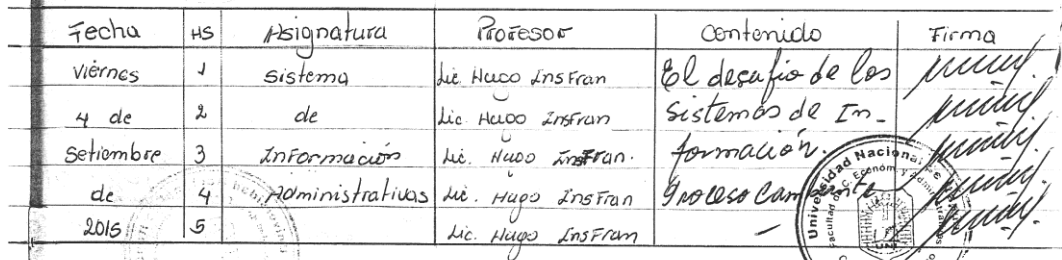 Fecha HS Asignatura Profesor Contenido Firma
Viernes 1 Sistema Lic. Hugo Insfran El desafio de los
4 de 2 de Lic. Hugo Insfran Sistemas de In-
Setiembre 3 Información Lic. Hugo Insfran. formación.
de 4 Administrativas Lic. Hugo Insfran Proceso
2015 5 Lic. Hugo Insfran -
Universidad Nacional
Facultad de C. Económ. y Administrativas
UNI